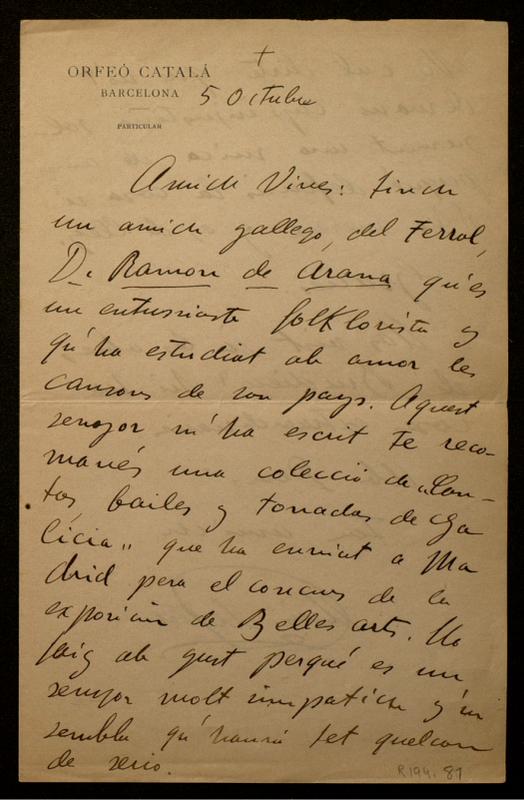 +
ORFEÓ CATALÁ
BARCELONA
5 Octubre
PARTICULAR
Amich Vives: tinch
un amich gallego, del Ferrol,
D. Ramon de Arana qu'es
un entusiaste folklorista y
qu'ha estudiat ab amor les
cansons de son pays. Aquest
senyor m'ha escrit te reco-
manés una colecció de „Can-
tos, bailes y tonadas de Ga
licia„ que ha enviat a Ma
drid pera el concurs de la
exposición de Belles arts. Ho
faig ab gust perqué es un
senyor molt simpatich y'm
sembla qu'haurá fet quelcom
de serio.
R194. 81